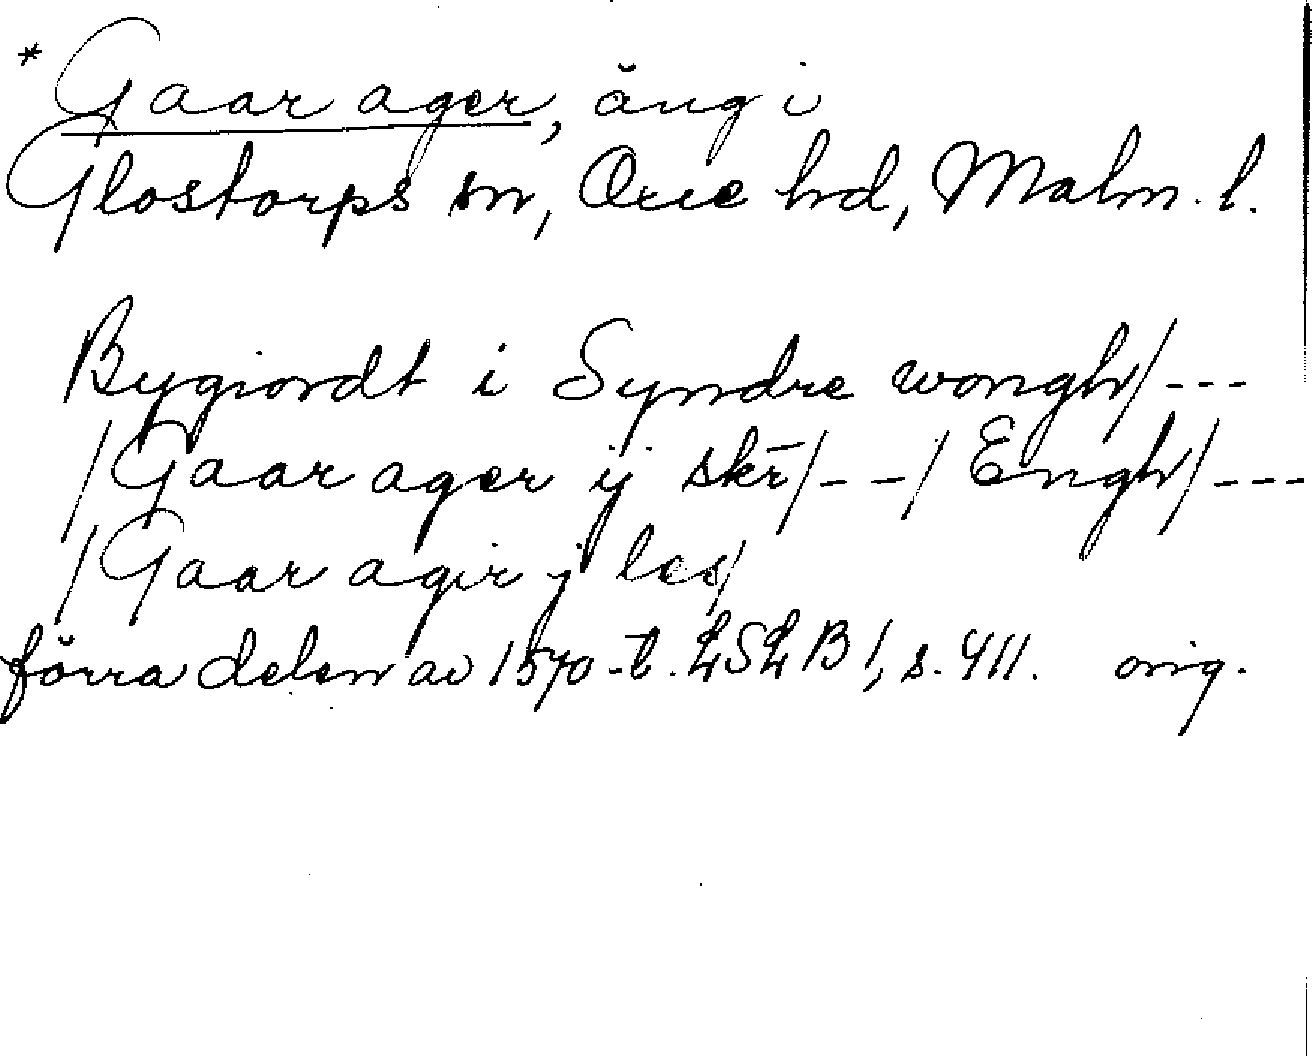 * Gaar ager, äng i
Glostorps sn, Oxie hd, Malm. l.
Bygiordt i Syndre wongh/---
/Gaar ager ij skr̄/---/Engh/---
/Gaar agir j les/
förra delen av 1570-t. LSLB 1, s. 411. orig.